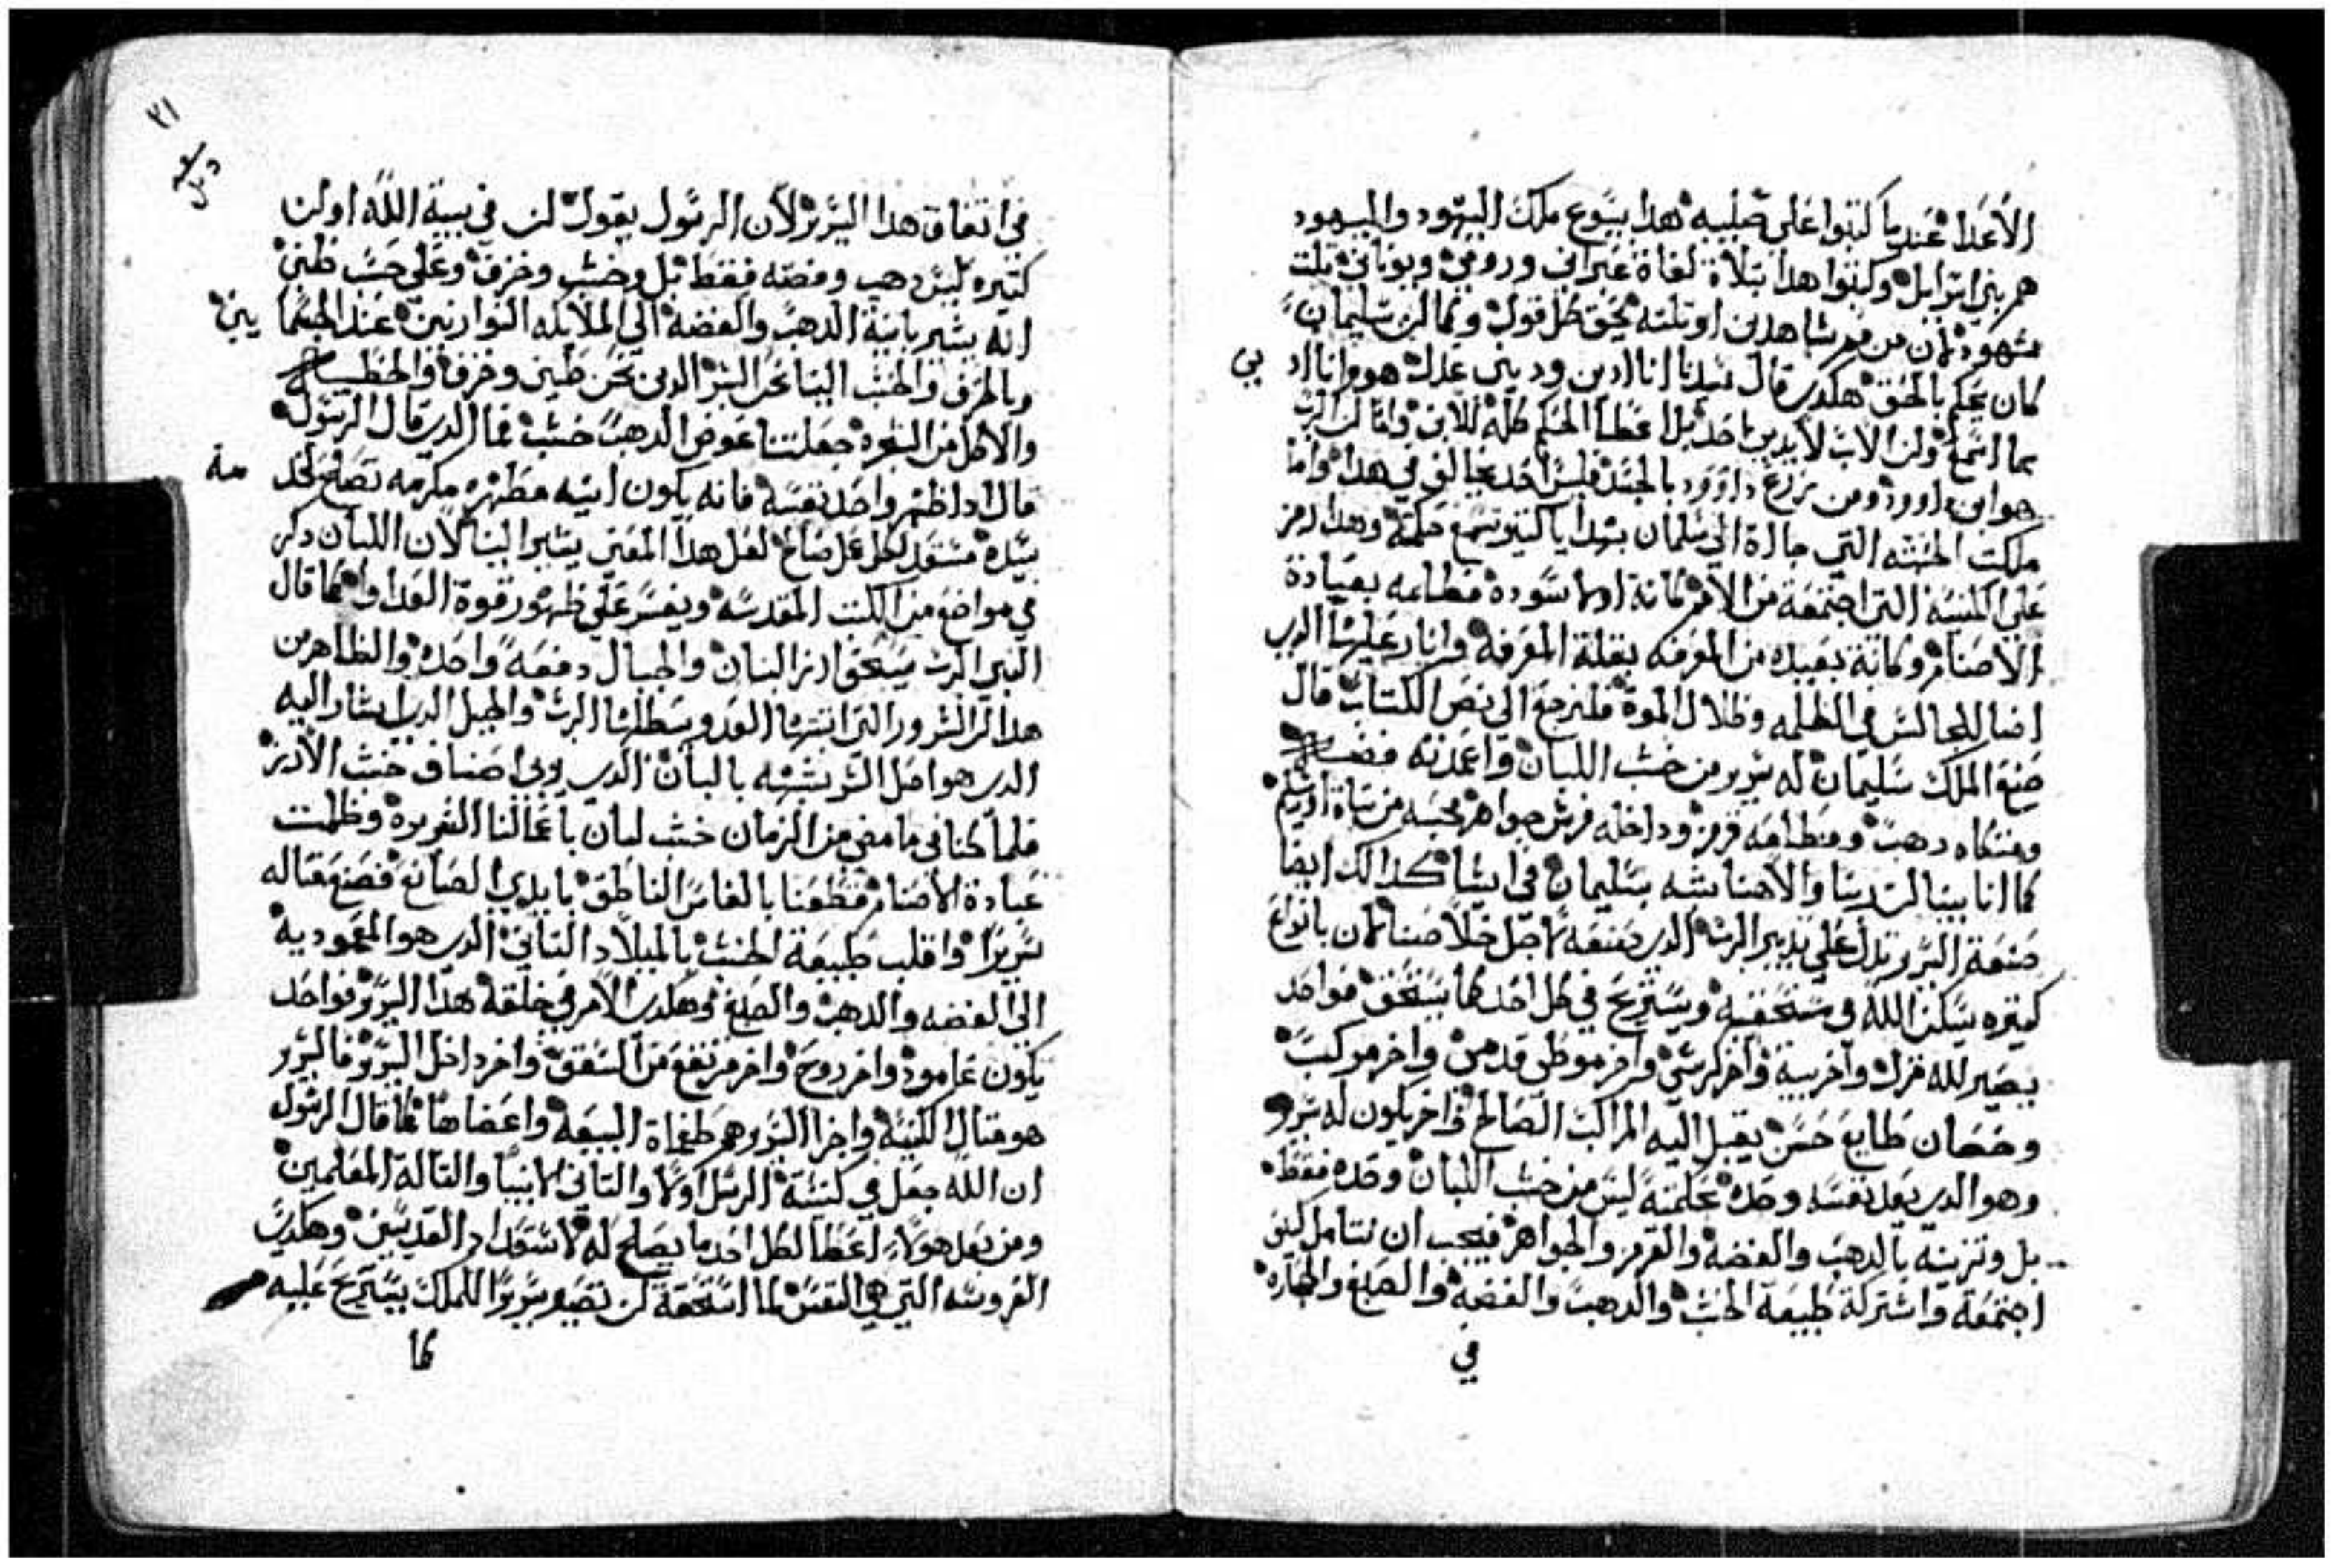 الأعدا عندما كتبوا على صليبه هدا يسوع ملك اليهود واليهود
هم بني اسرايل وكتبوا هدا بتلاة لغاة عبراني ورومي ويوناني تلت
شهود لان من فم شاهدين او تلته يحق كل قول وكما ان سليمان
كان يحكم بالحق هكدي قال سيدنا انا ادين وديني عدل هو وانا اد
بي
بما اسمع ولن الاب لا يدين احد بل اعطا الحكم كله للابن واما ان الرب
هو ابن داوود ومن زرع داوود بالجسد فليس احد يخالف في هدا واما
ملكت الحبشه التي جاة الى سليمان بهدايا كتيره تسمع حكمته وهدا رمز
على الكنيسة التي اجتمعة من الامم كانة اولا سوده مظلمه بعبادة
الأصنام وكانة بعيده من المعرفه بقلة المعرفة وانار عليها الدي
اضا للجالسين في الظلمه وظلال الموة فلنرجع الى نص الكتاب قال
صنع الملك سليمان له سرير من خشب اللبان واعمدته فضه
ومتكاه دهب ومطلعه قرمز وداخله فرش جواهر محبه من بناة اورشليم
كما اننا بينا ان ربنا والاهنا يشبه بسليمان في اشيا كدالك ايضا
صنعة السرير تدل على تدبير الرب الدي صنعه لاجل خلاصنا لان بانواع
كتيره يسكن الله في مستحقيه ويستريح في كل احد كما يستحق فواحد
يصير لله منزل واخر بيت واخر كرسي واخر موطى قدمين واخر مركب
وحصان طايع حسن يقبل اليه المراكب الصالح واخر يكون له سرير
وهو الدي يعد نفسه وحده محلمته ليس من خشب اللبان وحده فقط
بل وتزينه بالدهب والفضه والقرمز والجواهر فيجب ان نتامل كيف
اجتمعة واشتركة طبيعة الخشب والدهب والفضه والصبغ والحجاره
في
٣١
في اتفاق هدا السرير لأن الرسول يقول ان في بيت الله اوان
كتيره ليس دهب وفضه فقط بل وخشب وخزف وعلى حسب ظني
انه يشير بانية الدهب والفضه الى الملايكه النوارنيين عند الجسما
يين
وبالخزف والخشب الينا نحن البشر الدين نحن طين وخزف والخطيه
والاكل من الشجره جعلتنا عوض الدهب خشب كما الدي قال الرسول
قال ادا طهر واحد نفسه فانه يكون انيه مطهره مكرمه تصلح لخد
مة
سيده مستعد لكل عمل صالح لعل هدا المعنى يشير الينا لان اللبان دكر
في مواضع من الكتب المقدسه ويفسر على ظهور قوة العدا كما قال
النبي الرب يسحق ارز اللبنان والجبال دفعة واحده والظاهر من
هدا ان الشرور التي انبتها العدو سيبطلها الرب والجبل الدي يشار اليه
الدي هو اصل الشر يشبه بالبان الدي يربي اصناف خشب الأرز
فلما كنا في ما مضى من الزمان خشب لبان باعمالنا الشريره وظلمت
عبادة الاصنام فقطعنا بالفاس الناطق بايدي الصانع فصنعنا له
سريرا واقلب طبيعة الخشب بالميلاد التاني الدي هو المعموديه
الى الفضه والدهب والصبغ وهكدي الأمر في خلقة هدا السرير فواحد
يكون عامود واخر دوح واخر مرتفع من السقف واخر داخل السرير فالسرير
هو متال الكنيسة واجزا السرير هم طغماة البيعه واعضاها كما قال الرسول
ان الله جعل في كنيسته الرسل اولا والتاني لانبيا والتالة المعلمين
ومن بعد هولاء اعطا لكل احد ما يصلح له لاستعداد القديسين وهكدي
العروسه التي هي النفس لما استحقة ان تصير سريرا للملك يستريح عليه
كما